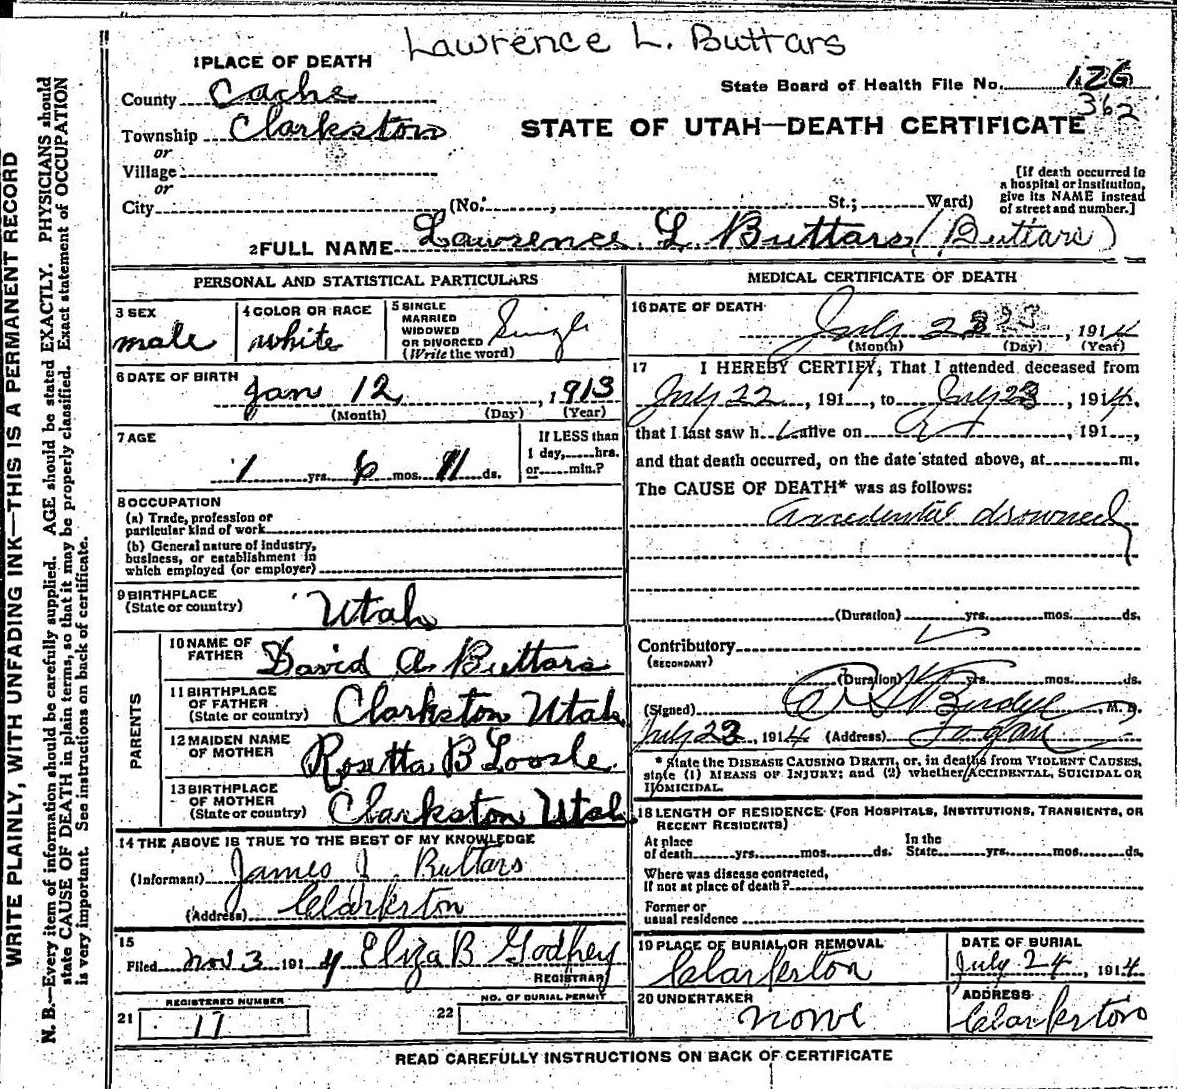 Lawrence L. Buttars
1 PLACE OF DEATH
State Board of Health File No. 126
County Cache
362
Township Clarkston
STATE OF UTAH—DEATH CERTIFICATE
or
Village
or
City (No. , St.; Ward)
[If death occurred in a hospital or institution, give its NAME instead of street and number.]
2 FULL NAME Lawrence L. Buttars (Buttars)
PERSONAL AND STATISTICAL PARTICULARS
3 SEX
male
4 COLOR OR RACE
white
5 SINGLE
MARRIED
WIDOWED
OR DIVORCED
(Write the word)
Single
6 DATE OF BIRTH
Jan 12, 1913
(Month) (Day) (Year)
7 AGE
1 yrs. 6 mos. 11 ds.
If LESS than
1 day, hrs.
or min.?
8 OCCUPATION
(a) Trade, profession or
particular kind of work
(b) General nature of industry,
business, or establishment in
which employed (or employer)
9 BIRTHPLACE
(State or country)
Utah
PARENTS
10 NAME OF
FATHER
David A. Buttars
11 BIRTHPLACE
OF FATHER
(State or country)
Clarkston Utah
12 MAIDEN NAME
OF MOTHER
Rosetta B Loosle
13 BIRTHPLACE
OF MOTHER
(State or country)
Clarkston Utah
14 THE ABOVE IS TRUE TO THE BEST OF MY KNOWLEDGE
(Informant) James Buttars
(Address) Clarkston
15
Filed Nov 3 1914 Eliza B Godfrey
REGISTRAR
REGISTERED NUMBER
21 17
NO. OF BURIAL PERMIT
22
MEDICAL CERTIFICATE OF DEATH
16 DATE OF DEATH
July 23, 1914
(Month) (Day) (Year)
17 I HEREBY CERTIFY, That I attended deceased from
July 22, 191 , to July 23, 1914,
that I last saw h alive on , 191 ,
and that death occurred, on the date stated above, at m.
The CAUSE OF DEATH* was as follows:
drowned
(Duration) yrs. mos. ds.
Contributory
(SECONDARY)
(Duration) yrs. mos. ds.
(Signed) , M. D.
July 23, 1914 (Address)
* State the DISEASE CAUSING DEATH, or, in deaths from VIOLENT CAUSES,
state (1) MEANS OF INJURY; and (2) whether ACCIDENTAL, SUICIDAL OR
HOMICIDAL.
18 LENGTH OF RESIDENCE (FOR HOSPITALS, INSTITUTIONS, TRANSIENTS, OR
RECENT RESIDENTS)
At place
of death yrs. mos. ds.
In the
State yrs. mos. ds.
Where was disease contracted,
if not at place of death?
Former or
usual residence
19 PLACE OF BURIAL OR REMOVAL
Clarkston
DATE OF BURIAL
July 24, 1914
20 UNDERTAKER
none
ADDRESS
Clarkston
READ CAREFULLY INSTRUCTIONS ON BACK OF CERTIFICATE
WRITE PLAINLY, WITH UNFADING INK—THIS IS A PERMANENT RECORD
N. B.—Every item of information should be carefully supplied. AGE should be stated EXACTLY. PHYSICIANS should
state CAUSE OF DEATH in plain terms, so that it may be properly classified. Exact statement of OCCUPATION
is very important. See instructions on back of certificate.